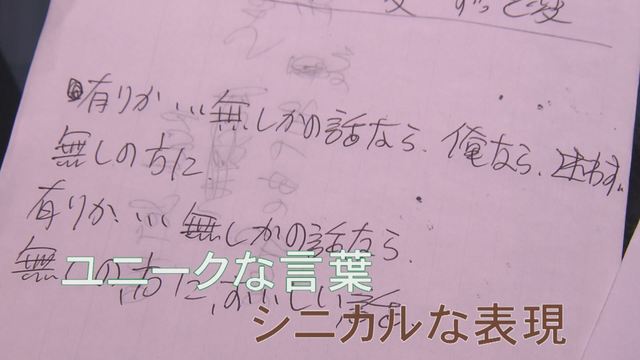 ずっと変
有りか…無しかの話なら、俺なら、迷わず、
無しの方に、
有りか、…無しかの話なら、
無しの、方に、おいしい
ユニークな言葉
シニカルな表現